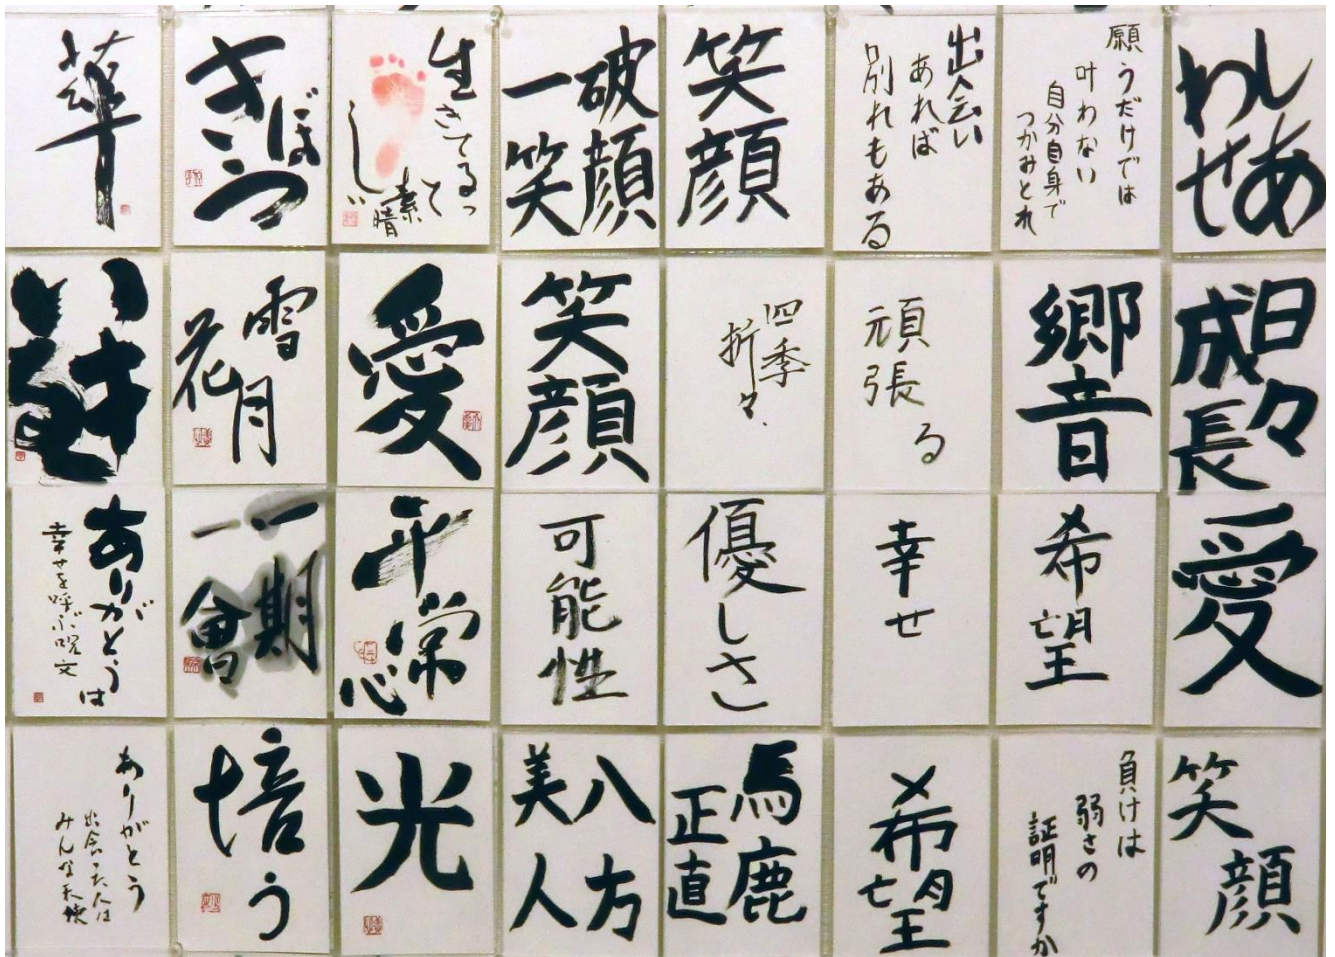 華
きぼう
生きてるって
素晴しい
破顔
一笑
笑顔
出会い
あれば
別れもある
願うだけでは
叶わない
自分自身で
つかみとれ
しあ
わせ
いきる
雪月
花
愛
笑顔
四季
折々
頑張る
響
日々
成長
ありがとうは
幸せを呼ぶ呪文
一期
一會
平常心
可能性
優しさ
幸せ
希望
愛
ありがとう
出会った人は
みんな天使
培う
光
八方
美人
馬鹿
正直
希望
負けは
弱さの
証明ですか
笑顔